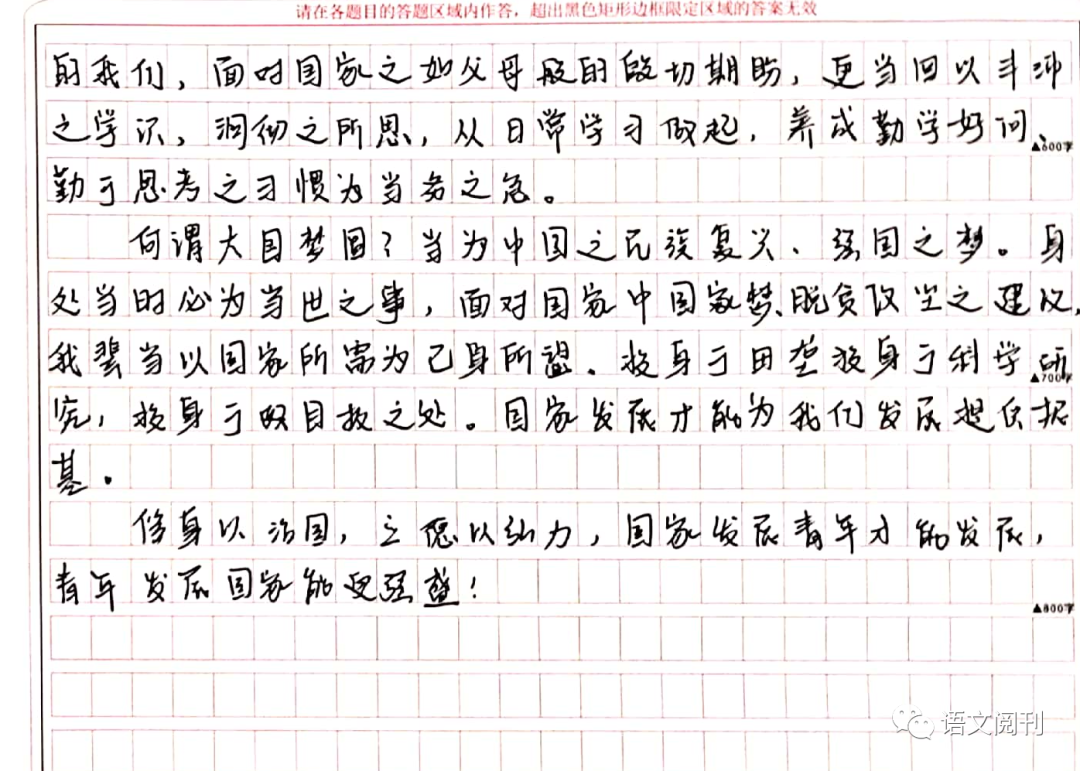 请在各题目的答题区域内作答，超出黑色矩形边框限定区域的答案无效
的我们，面对国家之如父母般的殷切期盼，更当回以丰沛
之学识，洞彻之所思，从日常学习做起，养成勤学好问、
▲600字
勤于思考之习惯为当务之急。
何谓大国梦圆？当为中国之民族复兴、强国之梦。身
处当时必为当世之事，面对国家中国家梦、脱贫攻坚之建议，
我辈当以国家所需为己身所盼。投身于田垄投身于科学研
▲700字
究，投身于效目投之处。国家发展才能为我们发展提供根
基。
修身以治国，立德以弘力，国家发展青年才能发展，
青年发展国家能更强盛！
▲800字
语文阅刊